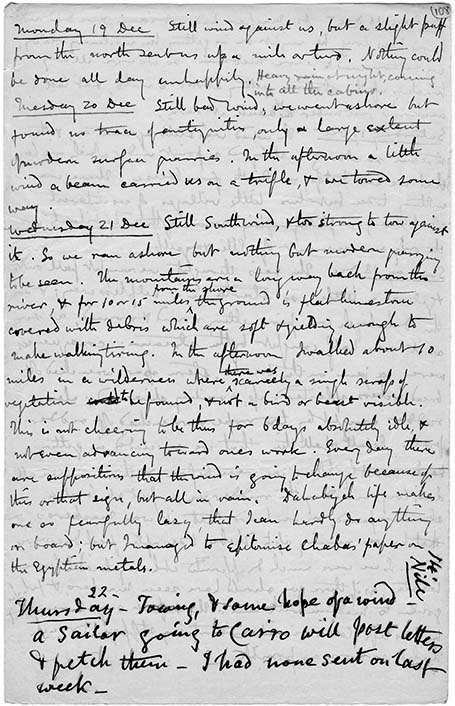 108
Monday 19 Dec Still wind against us, but a slight puff
from the north sent us up a mile or two. Nothing could
be done all day unhappily. Heavy rain at night, coming
into all the cabins.
Tuesday 20 Dec Still bad wind, we went ashore but
found no trace of antiquities, only a large extent
of modern surface quarries. In the afternoon a little
wind a beam carried us on a trifle, & we towed some
way
Wednesday 21 Dec Still South wind, & too strong to tow against
it. So we ran ashore but nothing but modern quarrying
to be seen. The mountains are a long way back from the
river, & for 10 or 15 miles from the shore the ground is flat limestone
covered with debris which are soft & yielding enough to
make walking tiring. In the afternoon I walked about 10
miles in a wilderness where there was scarcely a single scrap of
vegetation to be found & not a bird or beast visible.
This is not cheering to be thus for 6 days absolutely idle, &
not even advancing toward ones work. Every day there
are suppositions that the wind is going to change because of
this or that sign, but all in vain. Dahabiyeh life makes
one so fearfully lazy that I can hardly do anything
on board: but I managed to epitomise Chabas' paper on
the Egyptian metals.
Nile
Thursday 22 – Towing, & some hope of a wind –
a Sailor going to Cairo will post letters
& fetch them – I had none sent on last
week –